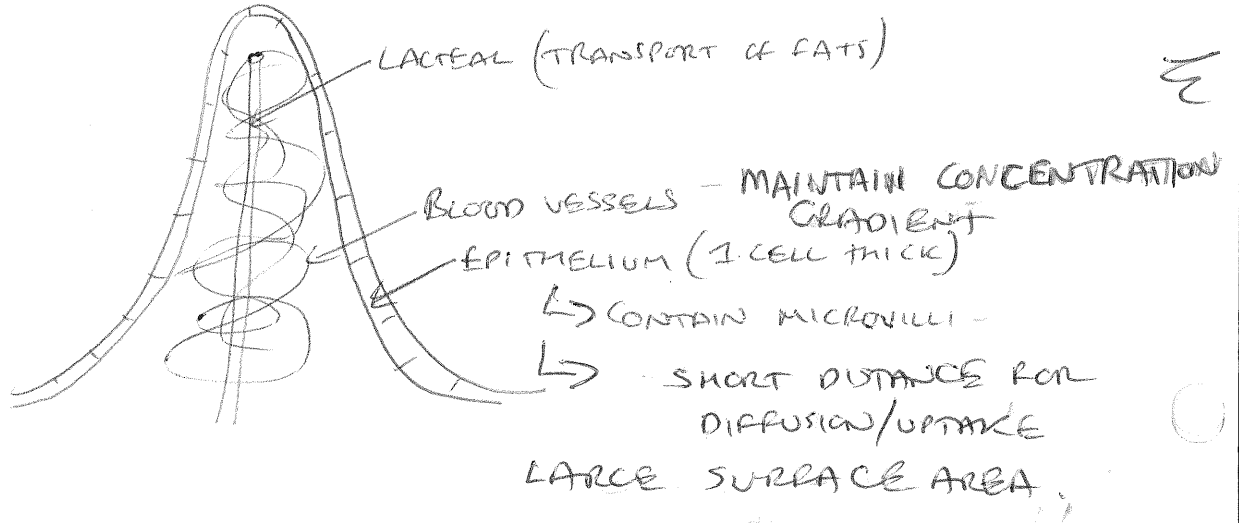 LACTEAL (TRANSPORT OF FATS)
BLOOD VESSELS - MAINTAIN CONCENTRATION
GRADIENT
EPITHELIUM (1 CELL THICK)
↳ CONTAIN MICROVILLI -
↳ SHORT DISTANCE FOR
DIFFUSION/UPTAKE
LARGE SURFACE AREA.